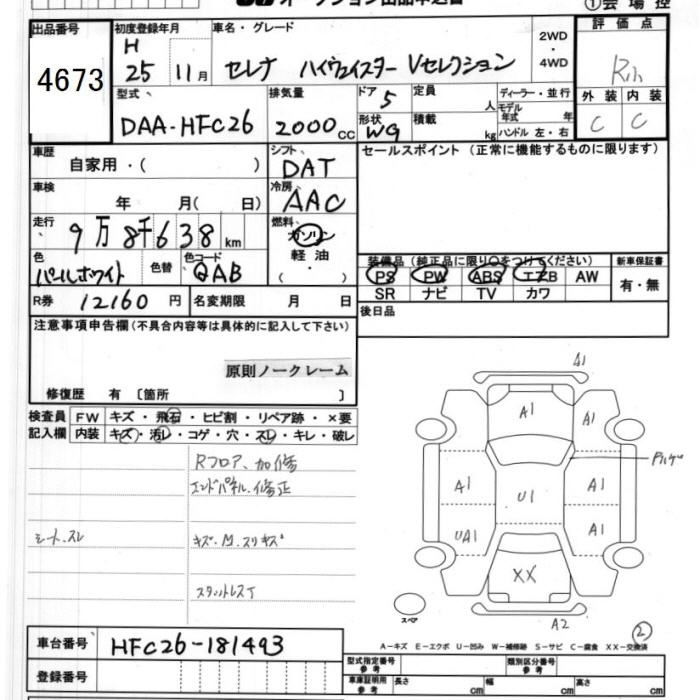 オークション出品申込書
①会場控
出品番号
4673
初度登録年月
H
25 11月
車名・グレード
セレナ ハイウェイスター Vセレクション
2WD
・
4WD
評価点
外装 内装
C C
型式
DAA-HFC26
排気量
2000cc
ドア 5
形状 WG
定員 人
積載 kg
ディーラー・並行
モデル年式 年
ハンドル 左・右
車歴
自家用・( )
シフト
DAT
車検
年 月( 日)
冷房
AAC
走行
9万8千638km
燃料
ガソリン
軽油
・
( )
色
パールホワイト
色替
色コード
QAB
R券 12160円
名変期限 月 日
セールスポイント (正常に機能するものに限ります)
装備品 (純正品に限り○をつけてください)
PS PW ABS エアB AW
SR ナビ TV カワ
新車保証書
有・無
後日品
注意事項申告欄(不具合内容等は具体的に記入して下さい)
原則ノークレーム
修復歴 有 〔箇所 〕
検査員
記入欄
FW キズ・飛石・ヒビ割・リペア跡・×要
内装 キズ・汚レ・コゲ・穴・スレ・キレ・破レ
Rフロア、加修
エンドパネル、修正
シート、スレ
キズ・凹、スリキズ
スタットレスT
A1
A1
A1
A1
U1
A1
UA1
A1
XX
A2
スペア
②
A-キズ E-エクボ U-凹み W-補修跡 S-サビ C-腐食 XX-交換済
車台番号 HFC26-181493
登録番号
型式指定番号 参考
類別区分番号 参考
車庫証明用 参考
長さ cm
幅 cm
高さ cm